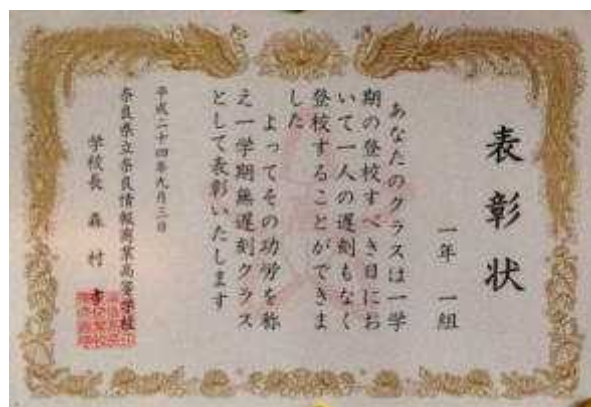 表彰状
一年 一組
あなたのクラスは一学
期の登校すべき日にお
いて一人の遅刻もなく
登校することができま
した
よってその功労を称
え一学期無遅刻クラス
として表彰いたします
平成二十四年九月三日
奈良県立奈良情報商業高等学校
学校長 森村